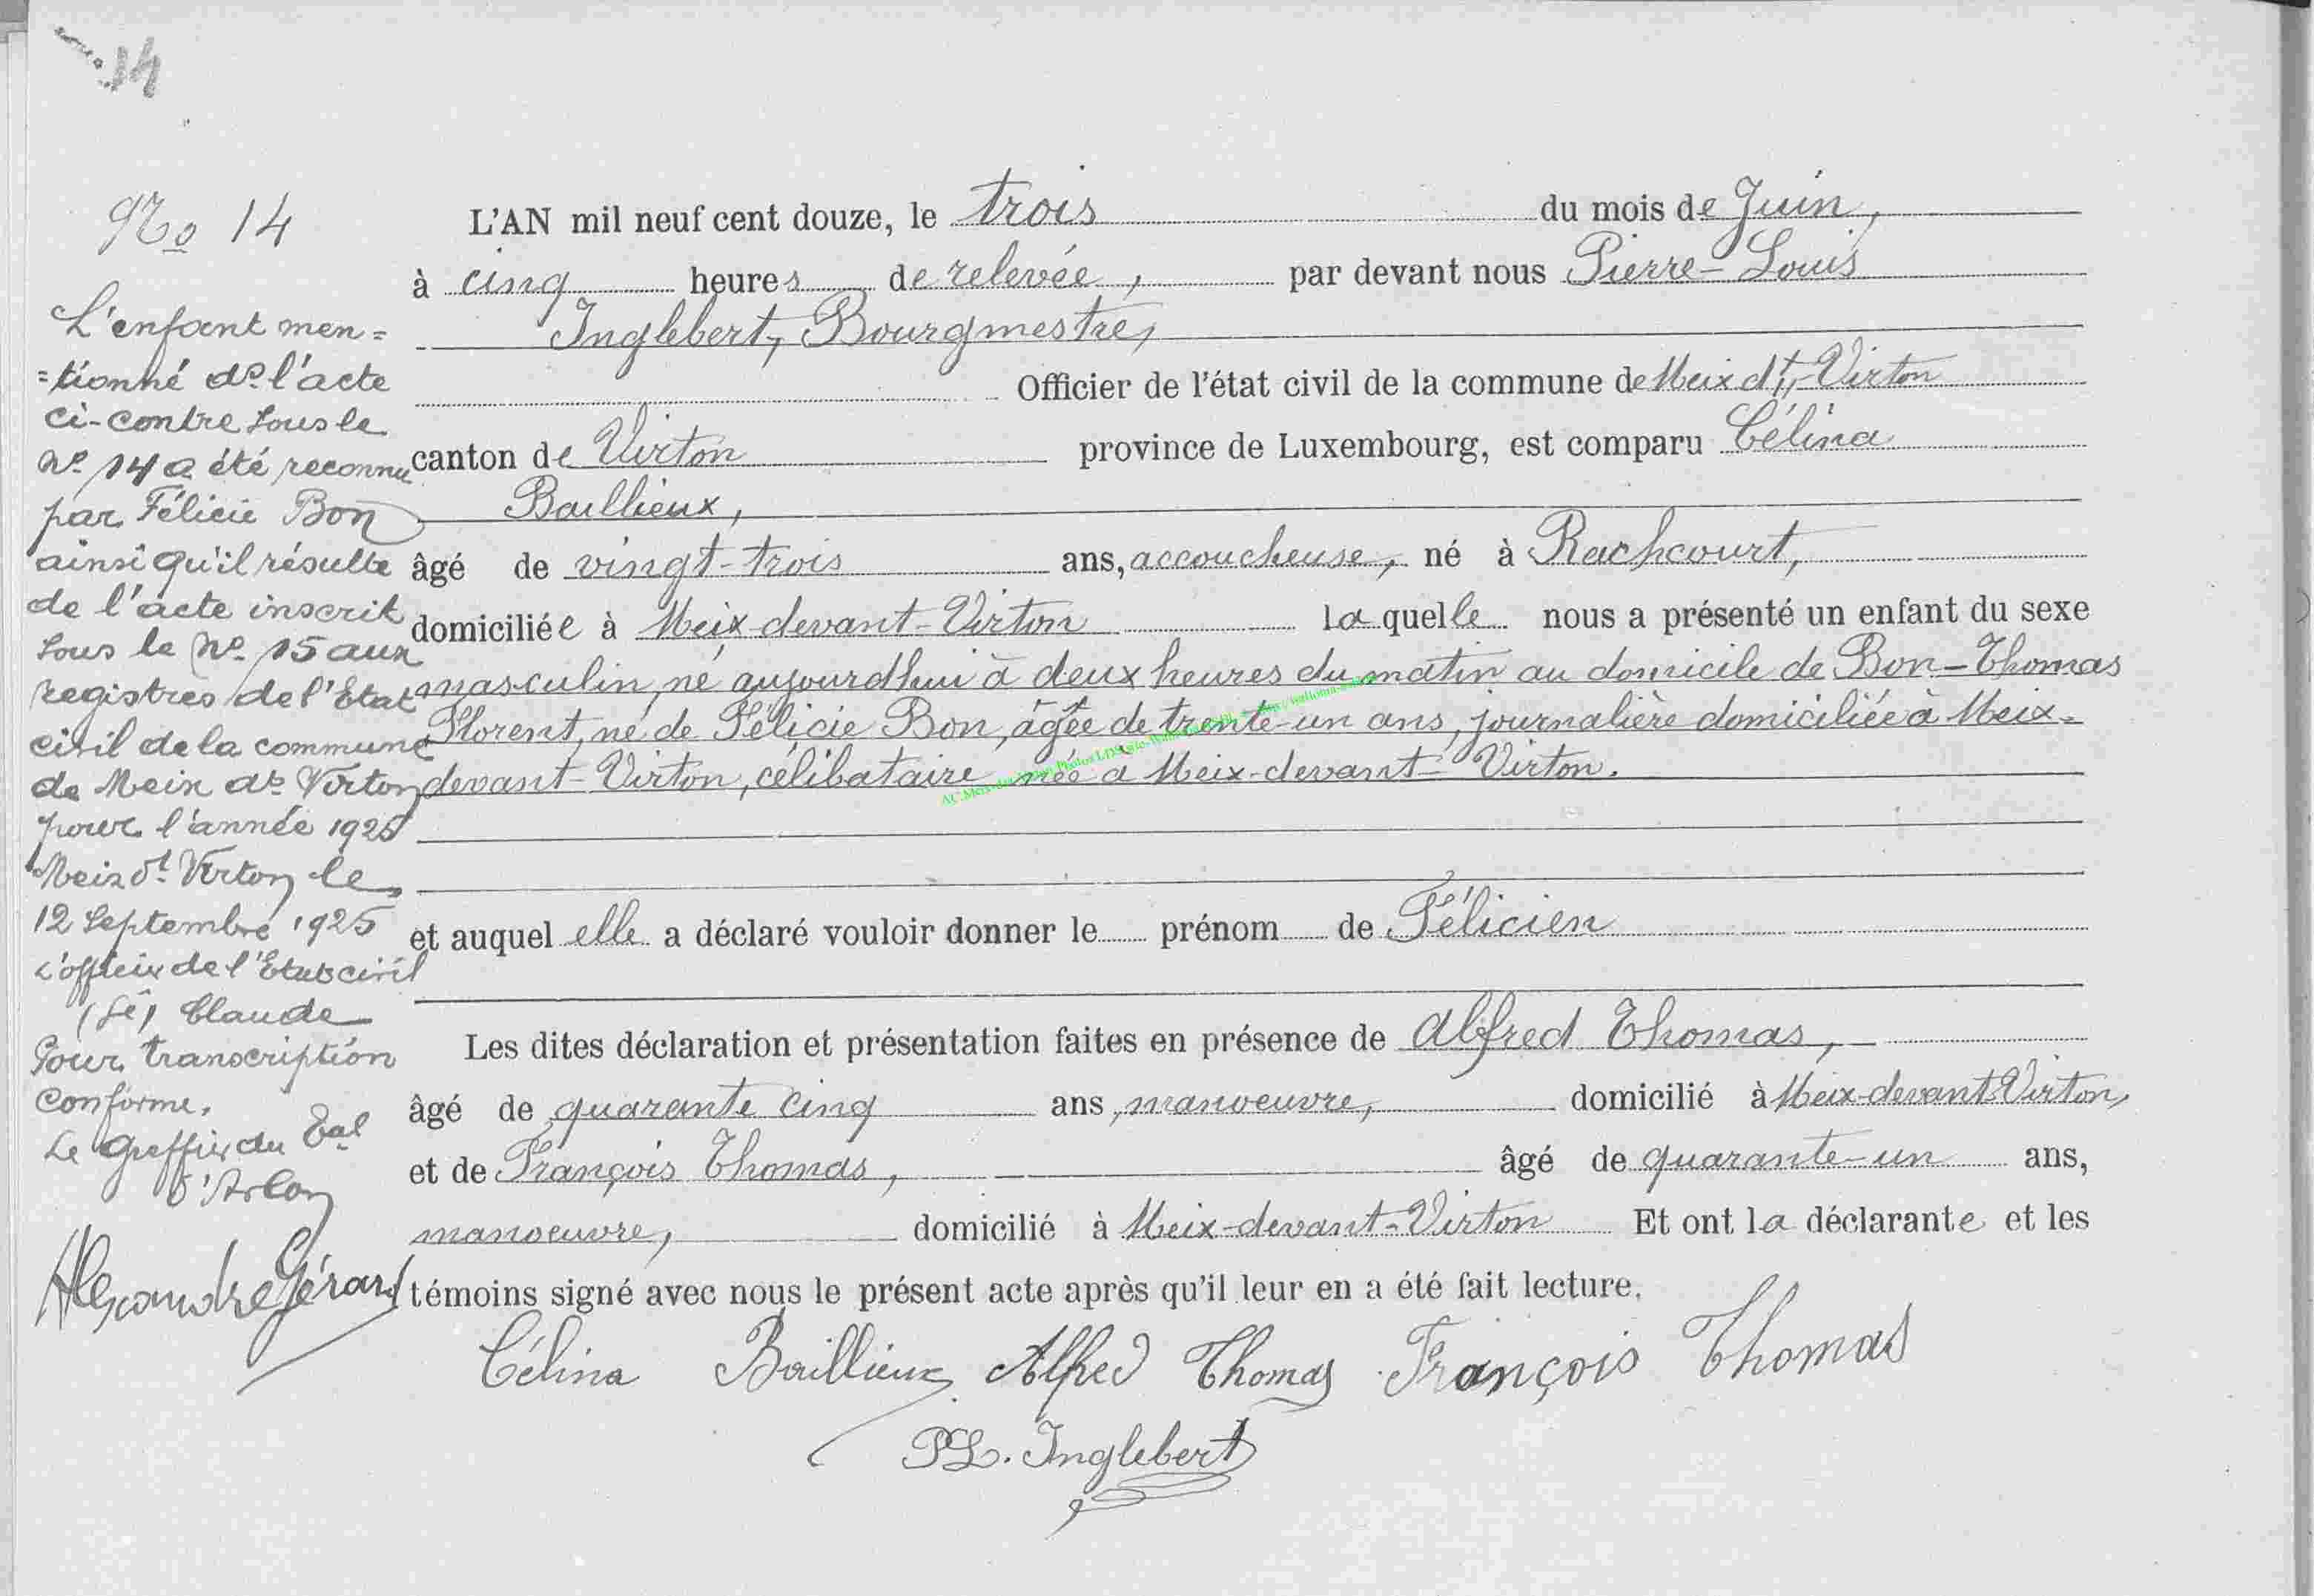 N° 14
No 14
L'enfant men=
=tionné ds l'acte
ci-contre sous le
N° 14 a été reconnu
par Félicie Bon
ainsi qu'il résulte
de l'acte inscrit
sous le N° 15 aux
registres de l'Etat
civil de la commune
de Meix dt Virton
pour l'année 1925
Meix dt Virton le
12 Septembre 1925
L'officier de l'Etat civil
(sé) Claude
Pour transcription
conforme.
Le Greffier du Tal
d'Arlon
Alexandre Gérard
L'AN mil neuf cent douze, le trois du mois de Juin,
à cinq heures de relevée, par devant nous Pierre-Louis
Inglebert, Bourgmestre,
Officier de l'état civil de la commune de Meix dt-Virton
canton de Virton province de Luxembourg, est comparu Célina
Baillieux,
âgé de vingt-trois ans, accoucheuse, né à Rachcourt,
domiciliée à Meix-devant-Virton laquelle nous a présenté un enfant du sexe
masculin, né aujourdhui à deux heures du matin au domicile de Bon-Thomas
Florent, né de Félicie Bon, âgée de trente-un ans, journalière domiciliée à Meix-
devant-Virton, célibataire née a Meix-devant-Virton.
et auquel elle a déclaré vouloir donner le prénom de Félicien
Les dites déclaration et présentation faites en présence de Alfred Thomas,
âgé de quarante cinq ans, manoeuvre, domicilié à Meix-devant-Virton,
et de François Thomas, âgé de quarante-un ans,
manoeuvre, domicilié à Meix-devant-Virton Et ont la déclarante et les
témoins signé avec nous le présent acte après qu'il leur en a été fait lecture.
Célina Baillieux Alfred Thomas François Thomas
PL. Inglebert